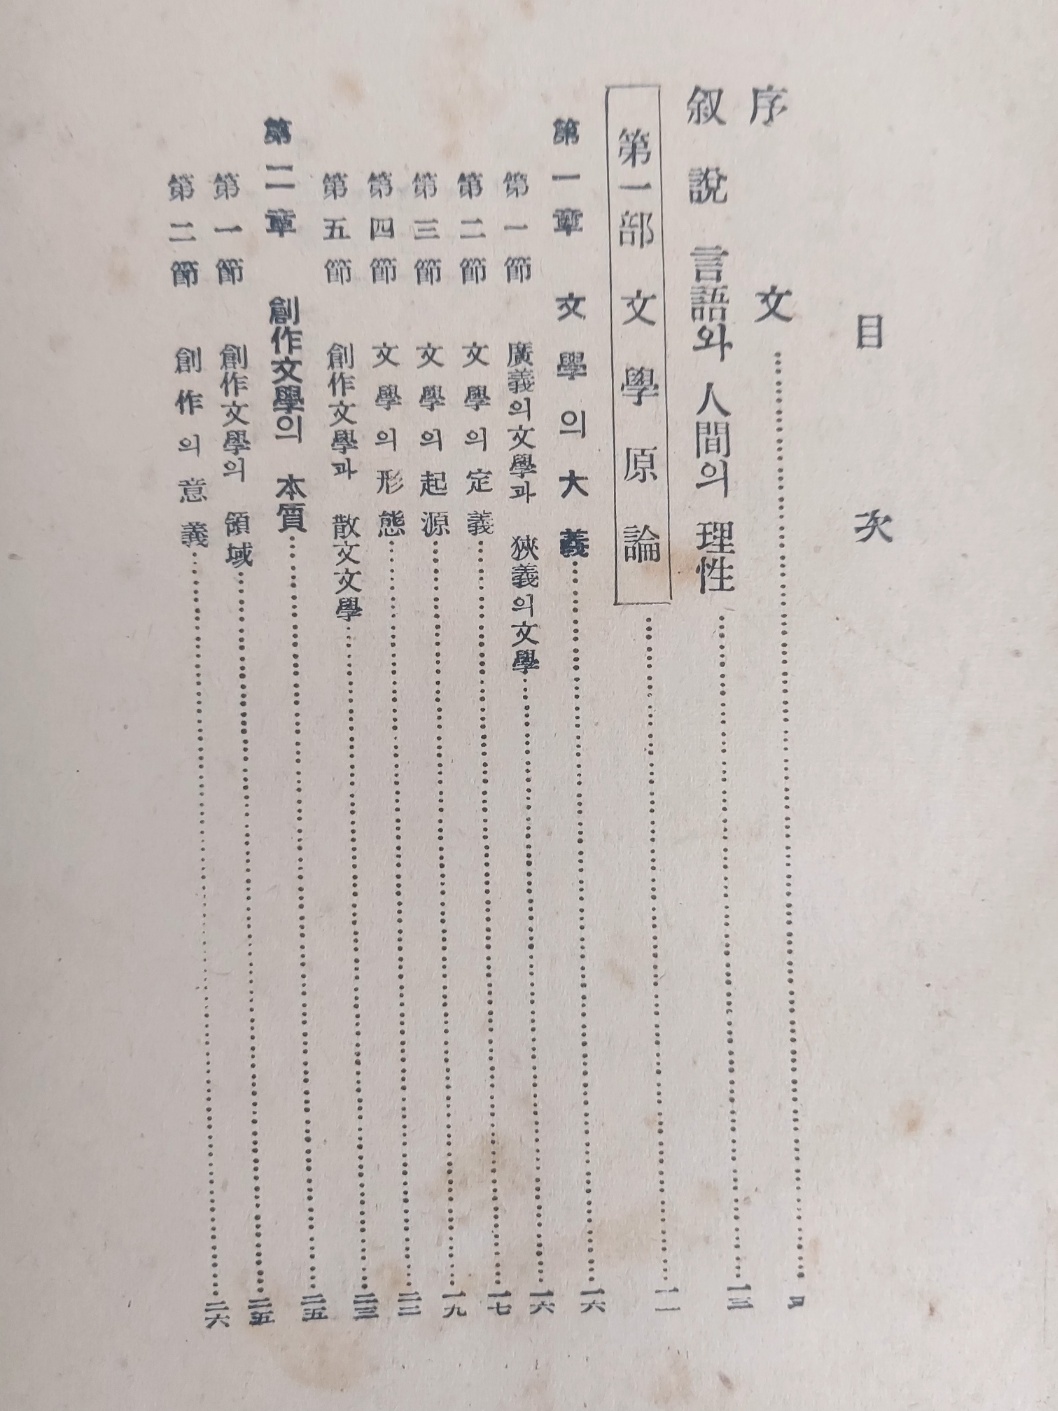 目次
序文……………………
叙說 言語와 人間의 理性……………………一三
第一部 文學原論……………………一一
第一章 文學의 大義……………………一六
第一節 廣義의 文學과 狹義의 文學……………………一六
第二節 文學의 定義……………………一七
第三節 文學의 起源……………………一九
第四節 文學의 形態……………………二二
第五節 創作文學과 散文文學……………………二三
第二章 創作文學의 本質……………………二五
第一節 創作文學의 領域……………………二五
第二節 創作의 意義……………………二六